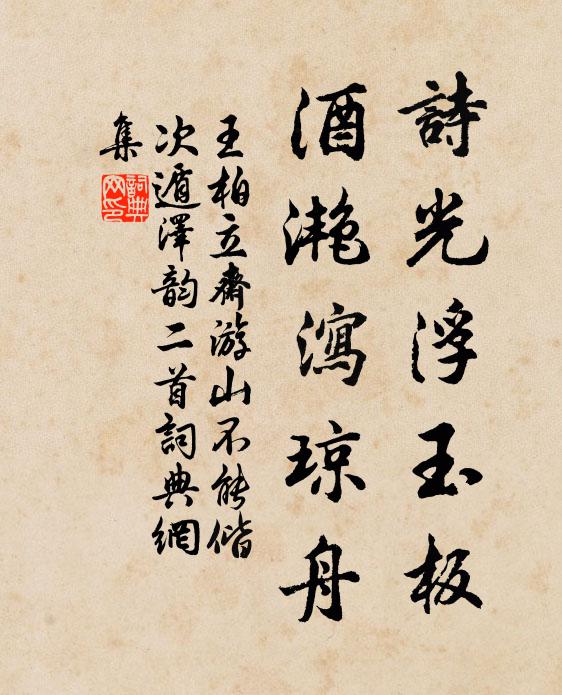 詩光浮玉板
酒灔瀉琼舟
王柏立齋游山不能偕
次遁澤韵二首詞典網
集
詞典网印